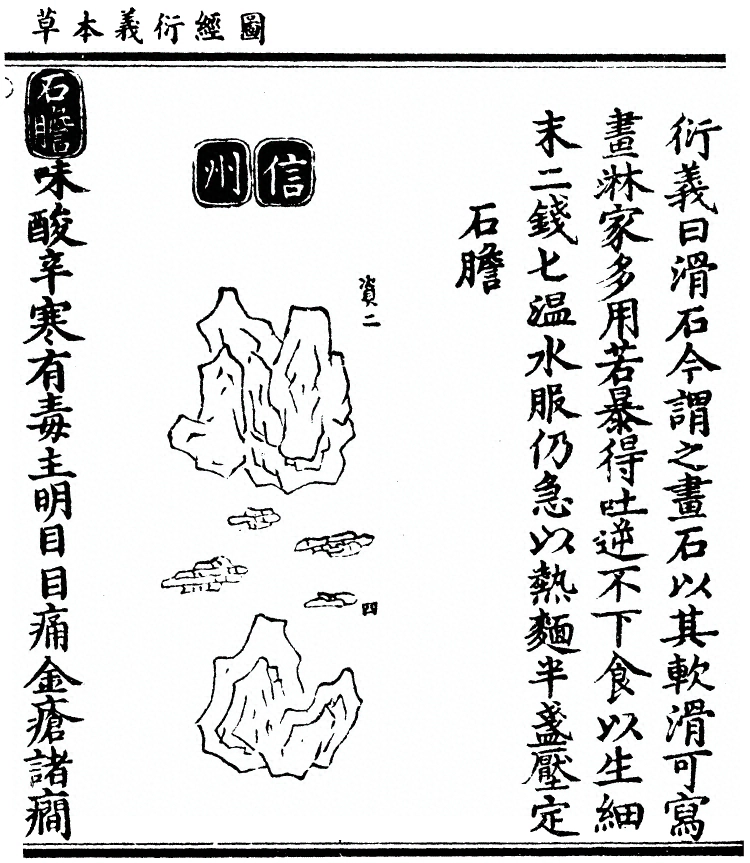 圖經衍義本草
衍義曰滑石今謂之畫石以其軟滑可寫
畫淋家多用若暴得吐逆不下食以生細
末二錢七温水服仍急以熱麵半盞壓定
石膽
資二
四
信州
石膽味酸辛寒有毒主明目目痛金瘡諸癇